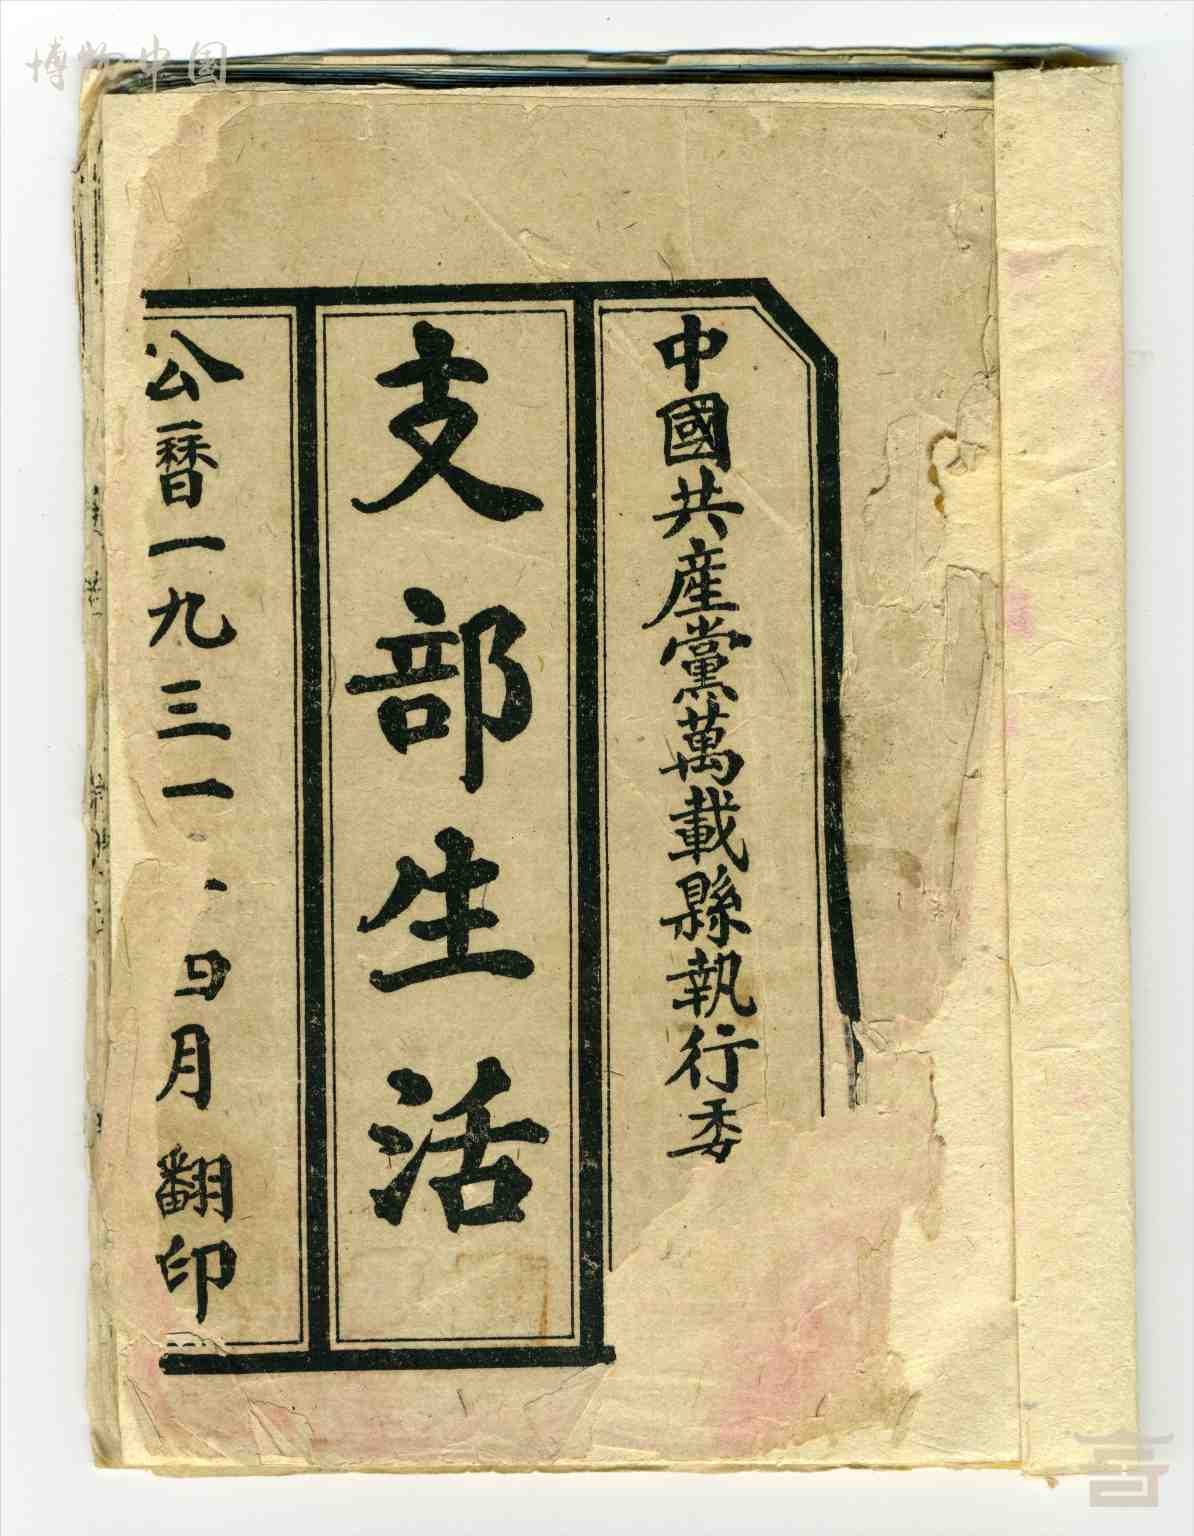 博物中国
中國共產黨萬載縣執行委
支部生活
公曆一九三一、四月翻印